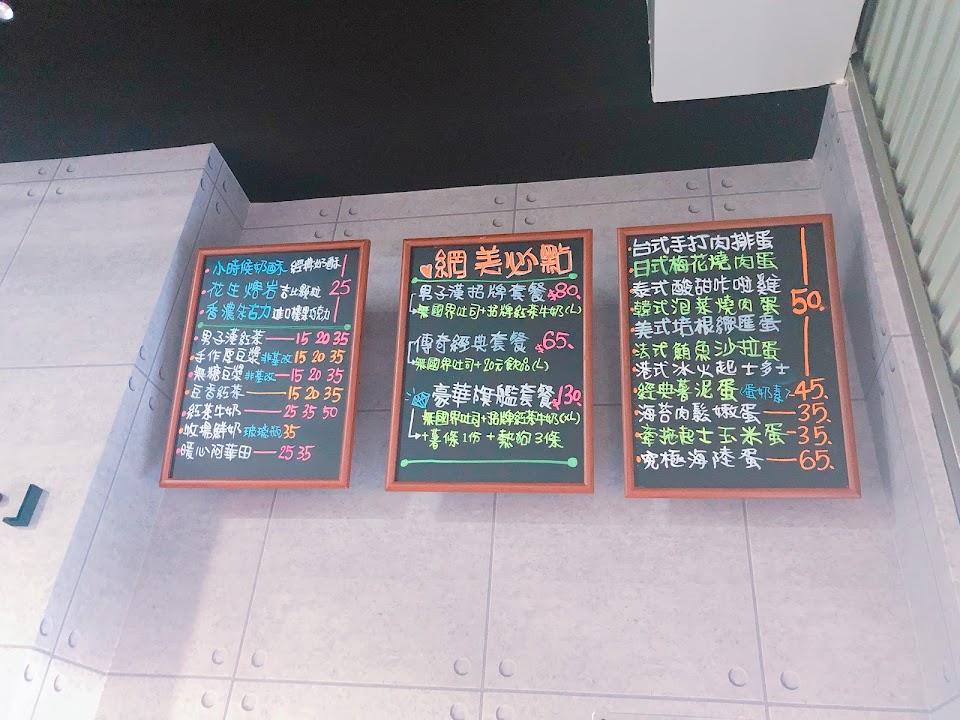 小時候奶酥 經典奶酥
花生熔岩 吉比顆粒 25
香濃巧克力 進口榛果巧克力
男子漢紅茶 15 20 35
手作厚豆漿 非基改 15 20 35
無糖豆漿 非基改 15 20 35
豆香紅茶 15 20 35
紅茶牛奶 25 35 50
牧場鮮奶 玻璃瓶 35
暖心阿華田 25 35
網美必點
男子漢招牌套餐 $80.
無國界吐司+招牌紅茶牛奶(L)
傳奇經典套餐 $65.
無國界吐司+20元飲品(L)
豪華旗艦套餐 $130
無國界吐司+招牌紅茶牛奶(XL)
+薯條1份+熱狗3條
台式手打肉排蛋
日式梅花燒肉蛋
泰式酸甜咔啦雞
韓式泡菜燒肉蛋 50.
美式培根總匯蛋
法式鮪魚沙拉蛋
港式冰火起士多士
經典薯泥蛋(蛋奶素) 45.
海苔肉鬆嫩蛋 35.
牽拖起士玉米蛋 35.
究極海陸蛋 65.